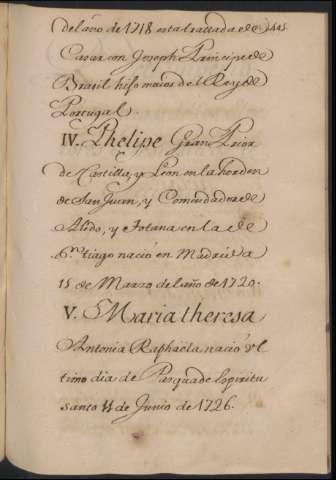 del año de 1718 esta trattada de
Casar con Joseph Principe de
Brasil hijo maior del Rey de
Portugal.
IV. Phelipe Gran Prior
de Castilla, y Leon en la horden
de San Juan, y Comendador de
Aledo, y Totana en la de
S.ntiago nació en Madrid a
15 de Marzo del año de 1720.
V. Maria theresa
Antonia Raphaela nació vl
timo dia de Pasqua de Espiritu
santo 11 de Junio de 1726.